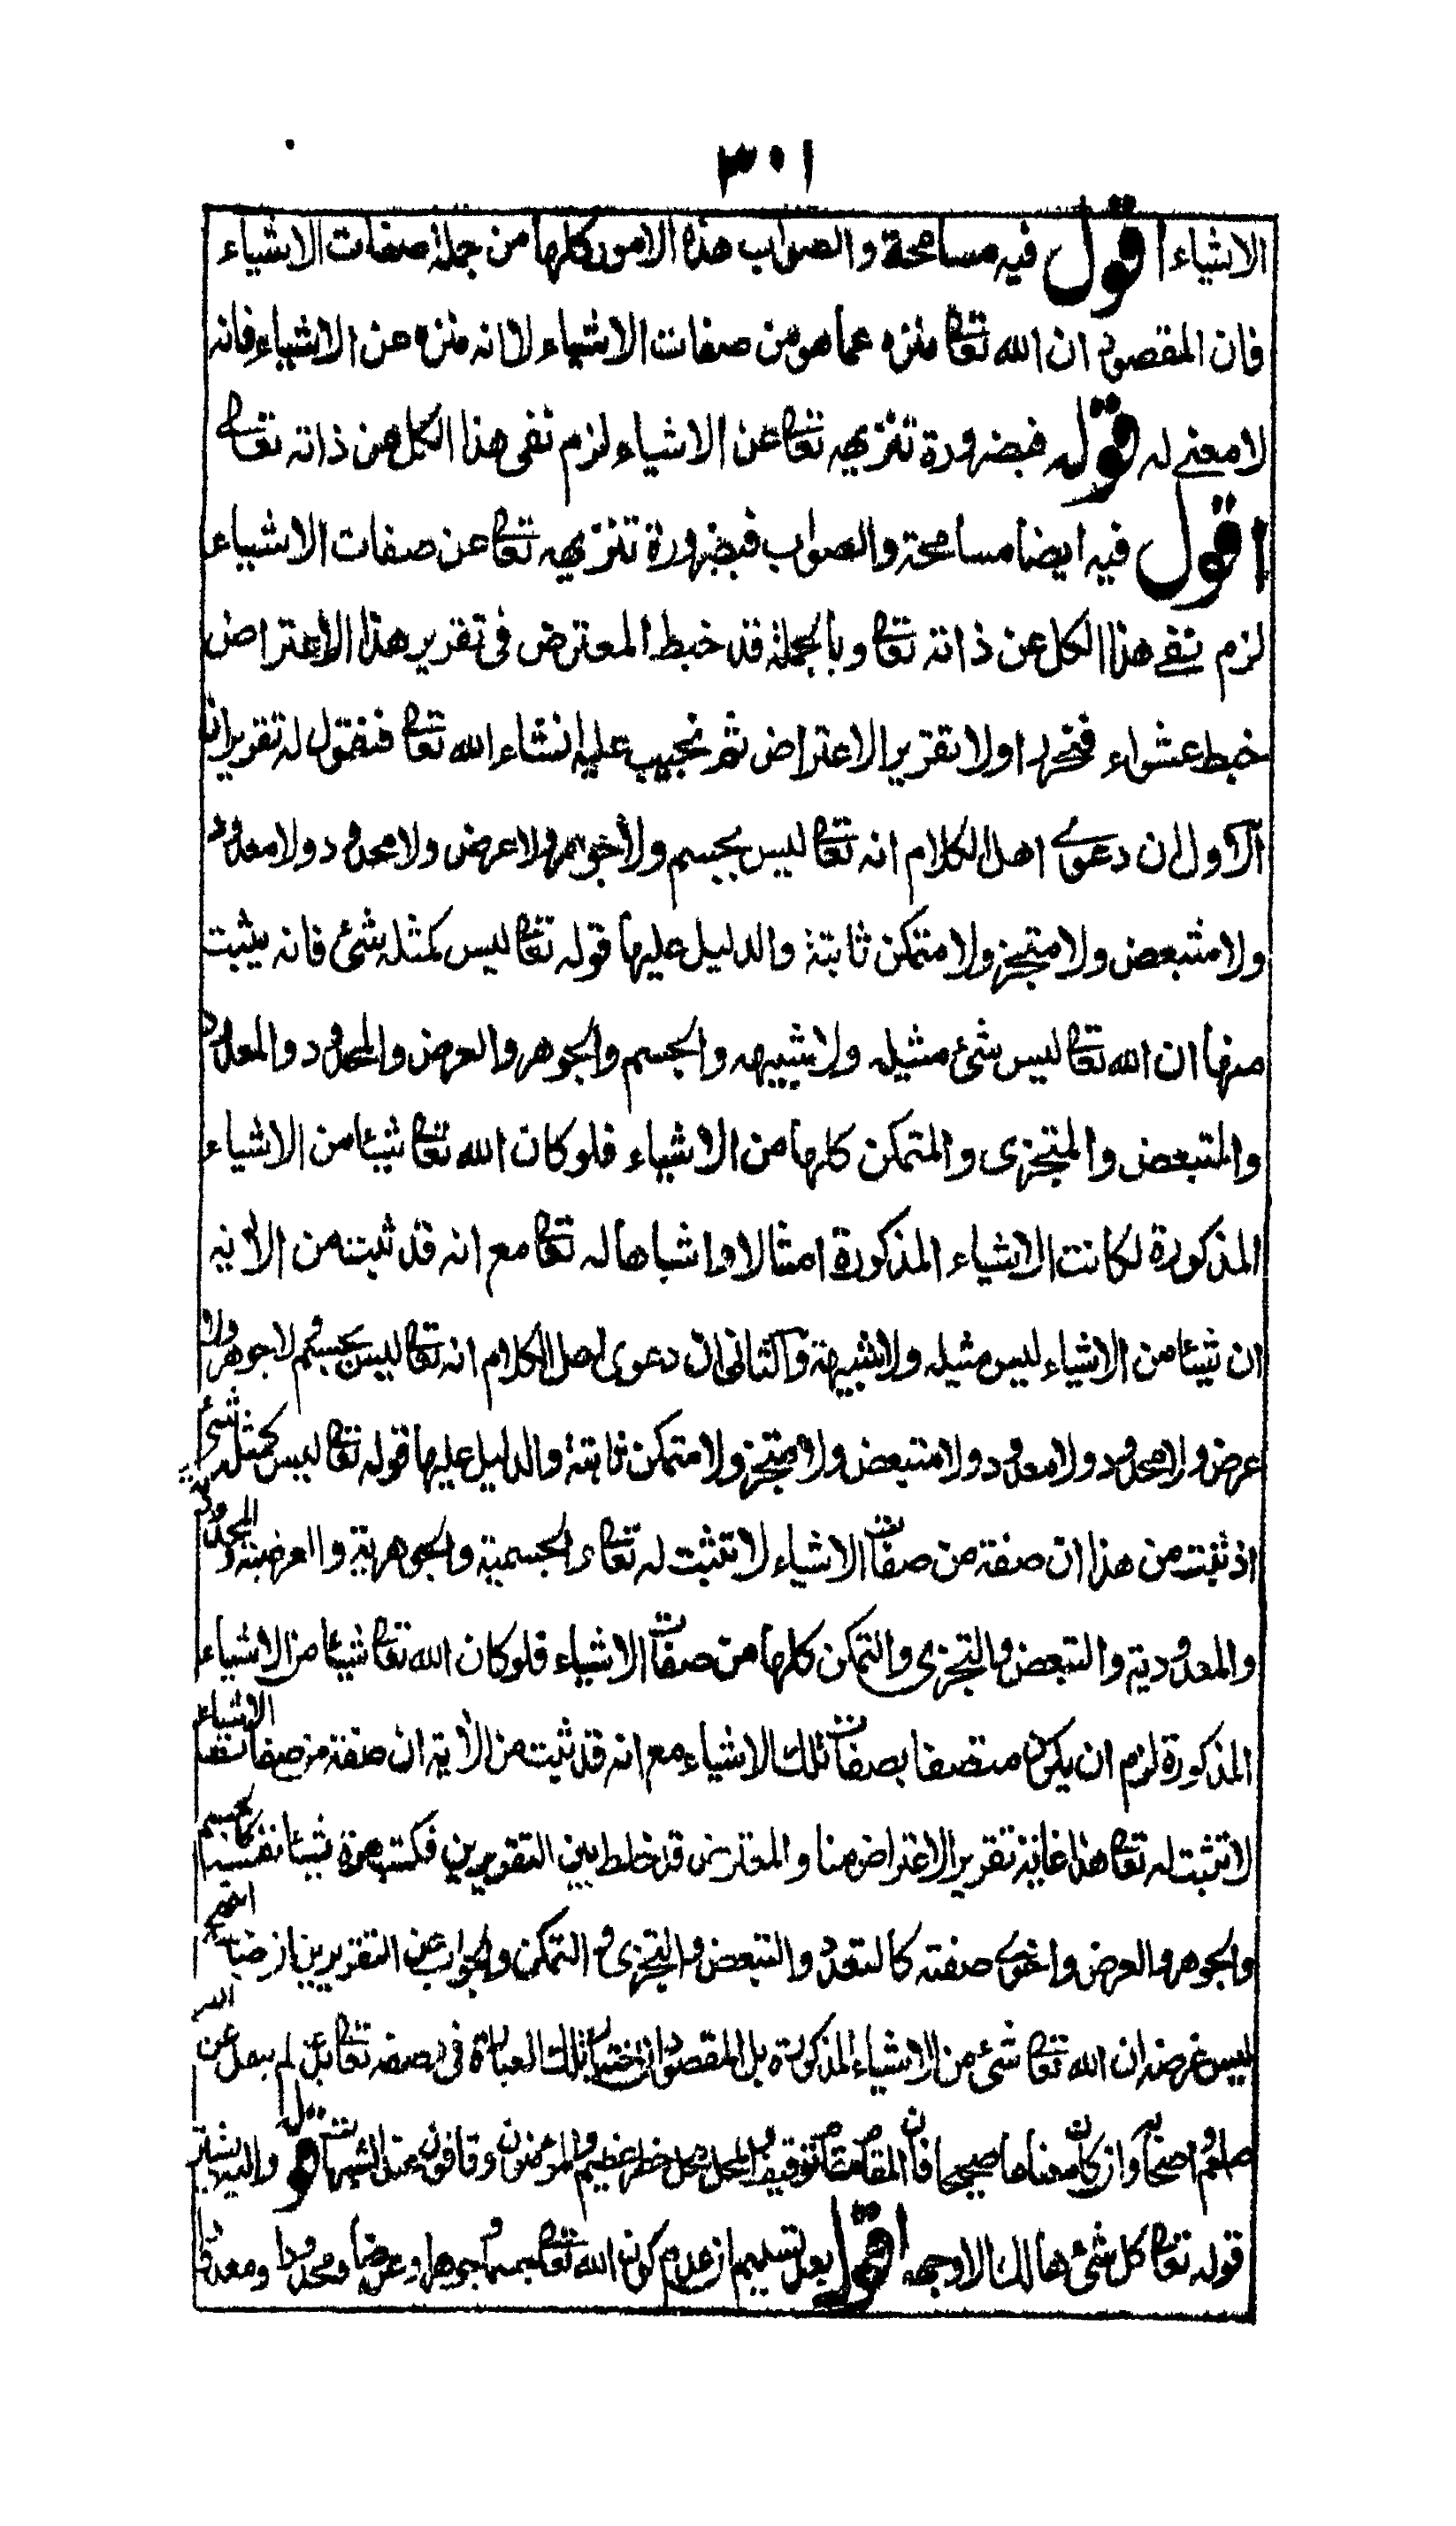 ٣٠١
الاشياء اقول فيه مسامحة والصواب هذه الامور كلها من جملة صفات الاشياء
فان المقصود ان الله تعا منزه عما هو من صفات الاشياء لا انه منزه عن الاشياء فانه
لا معنى له قوله فبضرورة تنزيهه تعا عن الاشياء لزم نفى هذا الكل عن ذاته تعا
اقول فيه ايضا مسامحة والصواب فبضرورة تنزيهه تعا عن صفات الاشياء
لزم نفى هذا الكل عن ذاته تعا وبالجملة قد خبط المعترض فى تقرير هذا الاعتراض
خبط عشواء فنحرر اولا تقرير الاعتراض ثم نجيب عليه انشاء الله تعا فنقول له تقريران
الاول ان دعوى اهل الكلام انه تعا ليس بجسم ولا جوهر ولا عرض ولا محدود ولا معدود
ولا متبعض ولا متجز ولا متمكن ثابتة والدليل عليها قوله تعا ليس كمثله شئ فانه يثبت
منها ان الله تعا ليس شئ مثيله ولا شبيهه والجسم والجوهر والعرض والمحدود والمعدود
والمتبعض والمتجزى والمتمكن كلها من الاشياء فلو كان الله تعا شيئا من الاشياء
المذكورة لكانت الاشياء المذكورة امثالا واشباها له تعا مع انه قد ثبت من الاية
ان شيئا من الاشياء ليس مثيله ولا شبيهه والثانى ان دعوى اهل الكلام انه تعا ليس بجسم ولا جوهر ولا
عرض ولا محدود ولا معدود ولا متبعض ولا متجز ولا متمكن ثابتة والدليل عليها قوله تعا ليس كمثله شئ
اذ ثبت من هذا ان صفة من صفات الاشياء لا تثبت له تعا والجسمية والجوهرية والعرضية والمحدودية
والمعدودية والتبعض والتجزى والتمكن كلها من صفات الاشياء فلو كان الله تعا شيئا من الاشياء
المذكورة لزم ان يكون متصفا بصفات تلك الاشياء مع انه قد ثبت من الاية ان صفة من صفات الاشياء
لا تثبت له تعا هذا غاية تقرير الاعتراض منا والمعترض قد خلط بين التقريرين فكتب مرة شيئا نفسه كالجسم
والجوهر والعرض واخرى صفته كالتعدد والتبعض والتجزى والتمكن والجواب عن التقريرين
ليس غرضه ان الله تعا شئ من الاشياء المذكورة بل المقصود ان اختيار تلك العبارة فى وصفه تعا لم ينقل عن
صلعم واصحابه وان كان معناها صحيحا فان المقام مقام توقيف والمحل محل خطر عظيم والمؤمنون وقافون عند الشبهات قوله واليه يشير
قوله تعا كل شئ هالك الا وجهه اقول بعد تسليم ان عدم كون الله تعا جسما وجوهرا وعرضا ومحدودا ومعدودا